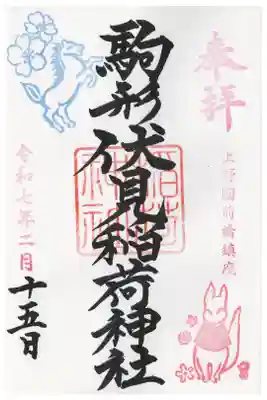 奉拝
上野国前橋鎮座
駒形伏見稲荷神社
稲荷神社
令和七年二月十五日